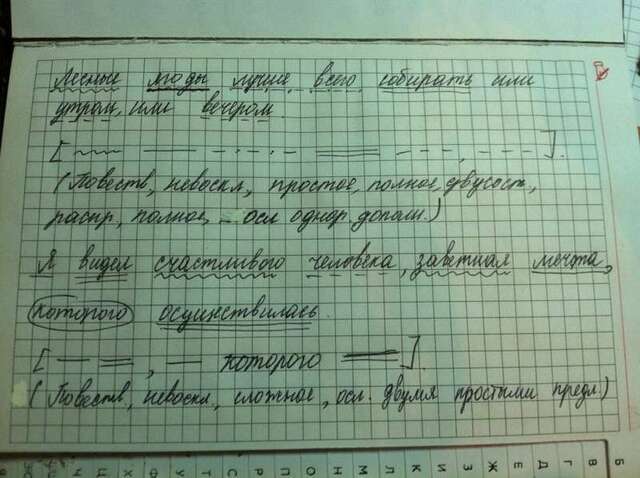 Лесные ягоды лучше всего собирать или
утром, или вечером.
[ , ].
(Повеств, невоскл, простое, полное, двусост,
распр, полное, осл однор. допол.)
Я видел счастливого человека, заветная мечта,
которого осуинствилась.
[ , которого ].
(Повеств, невоскл, сложное, осл. двумя простыми предл.)
Б В Г Д Е Ж З И К Л М Н О П Р С Т У Ф Х Ц Ч